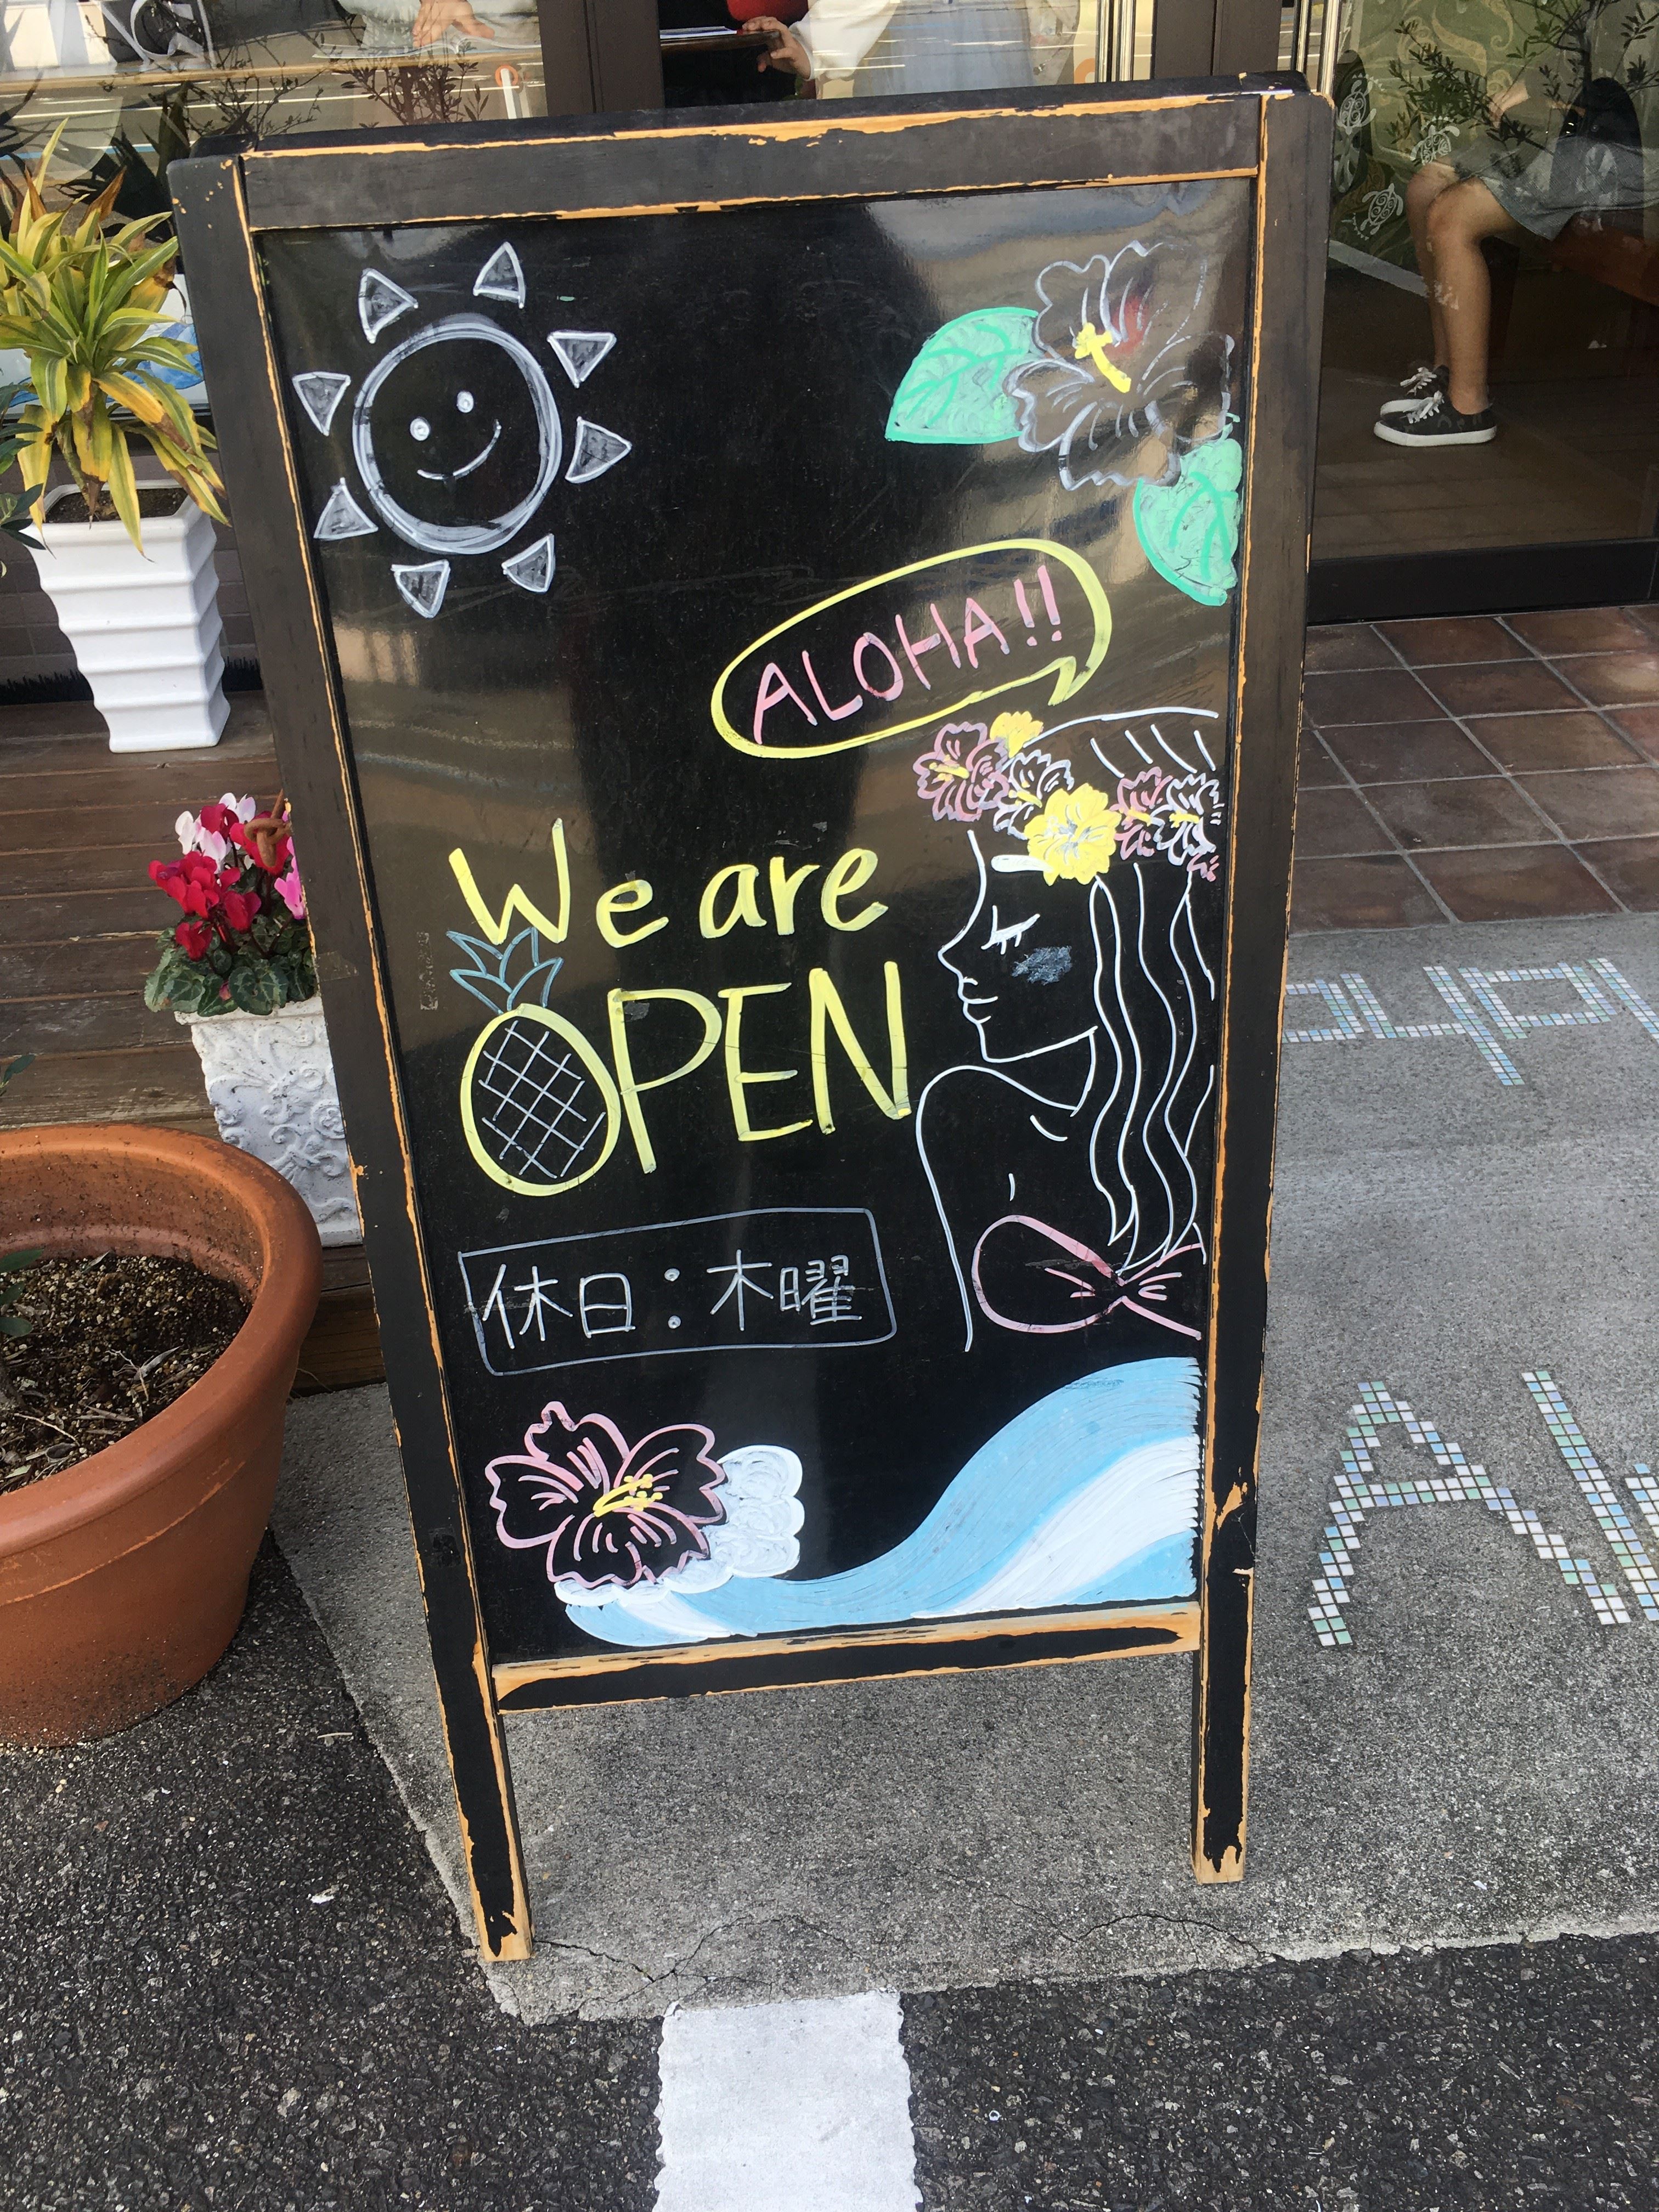 ALOHA!!
We are
OPEN
休日:木曜